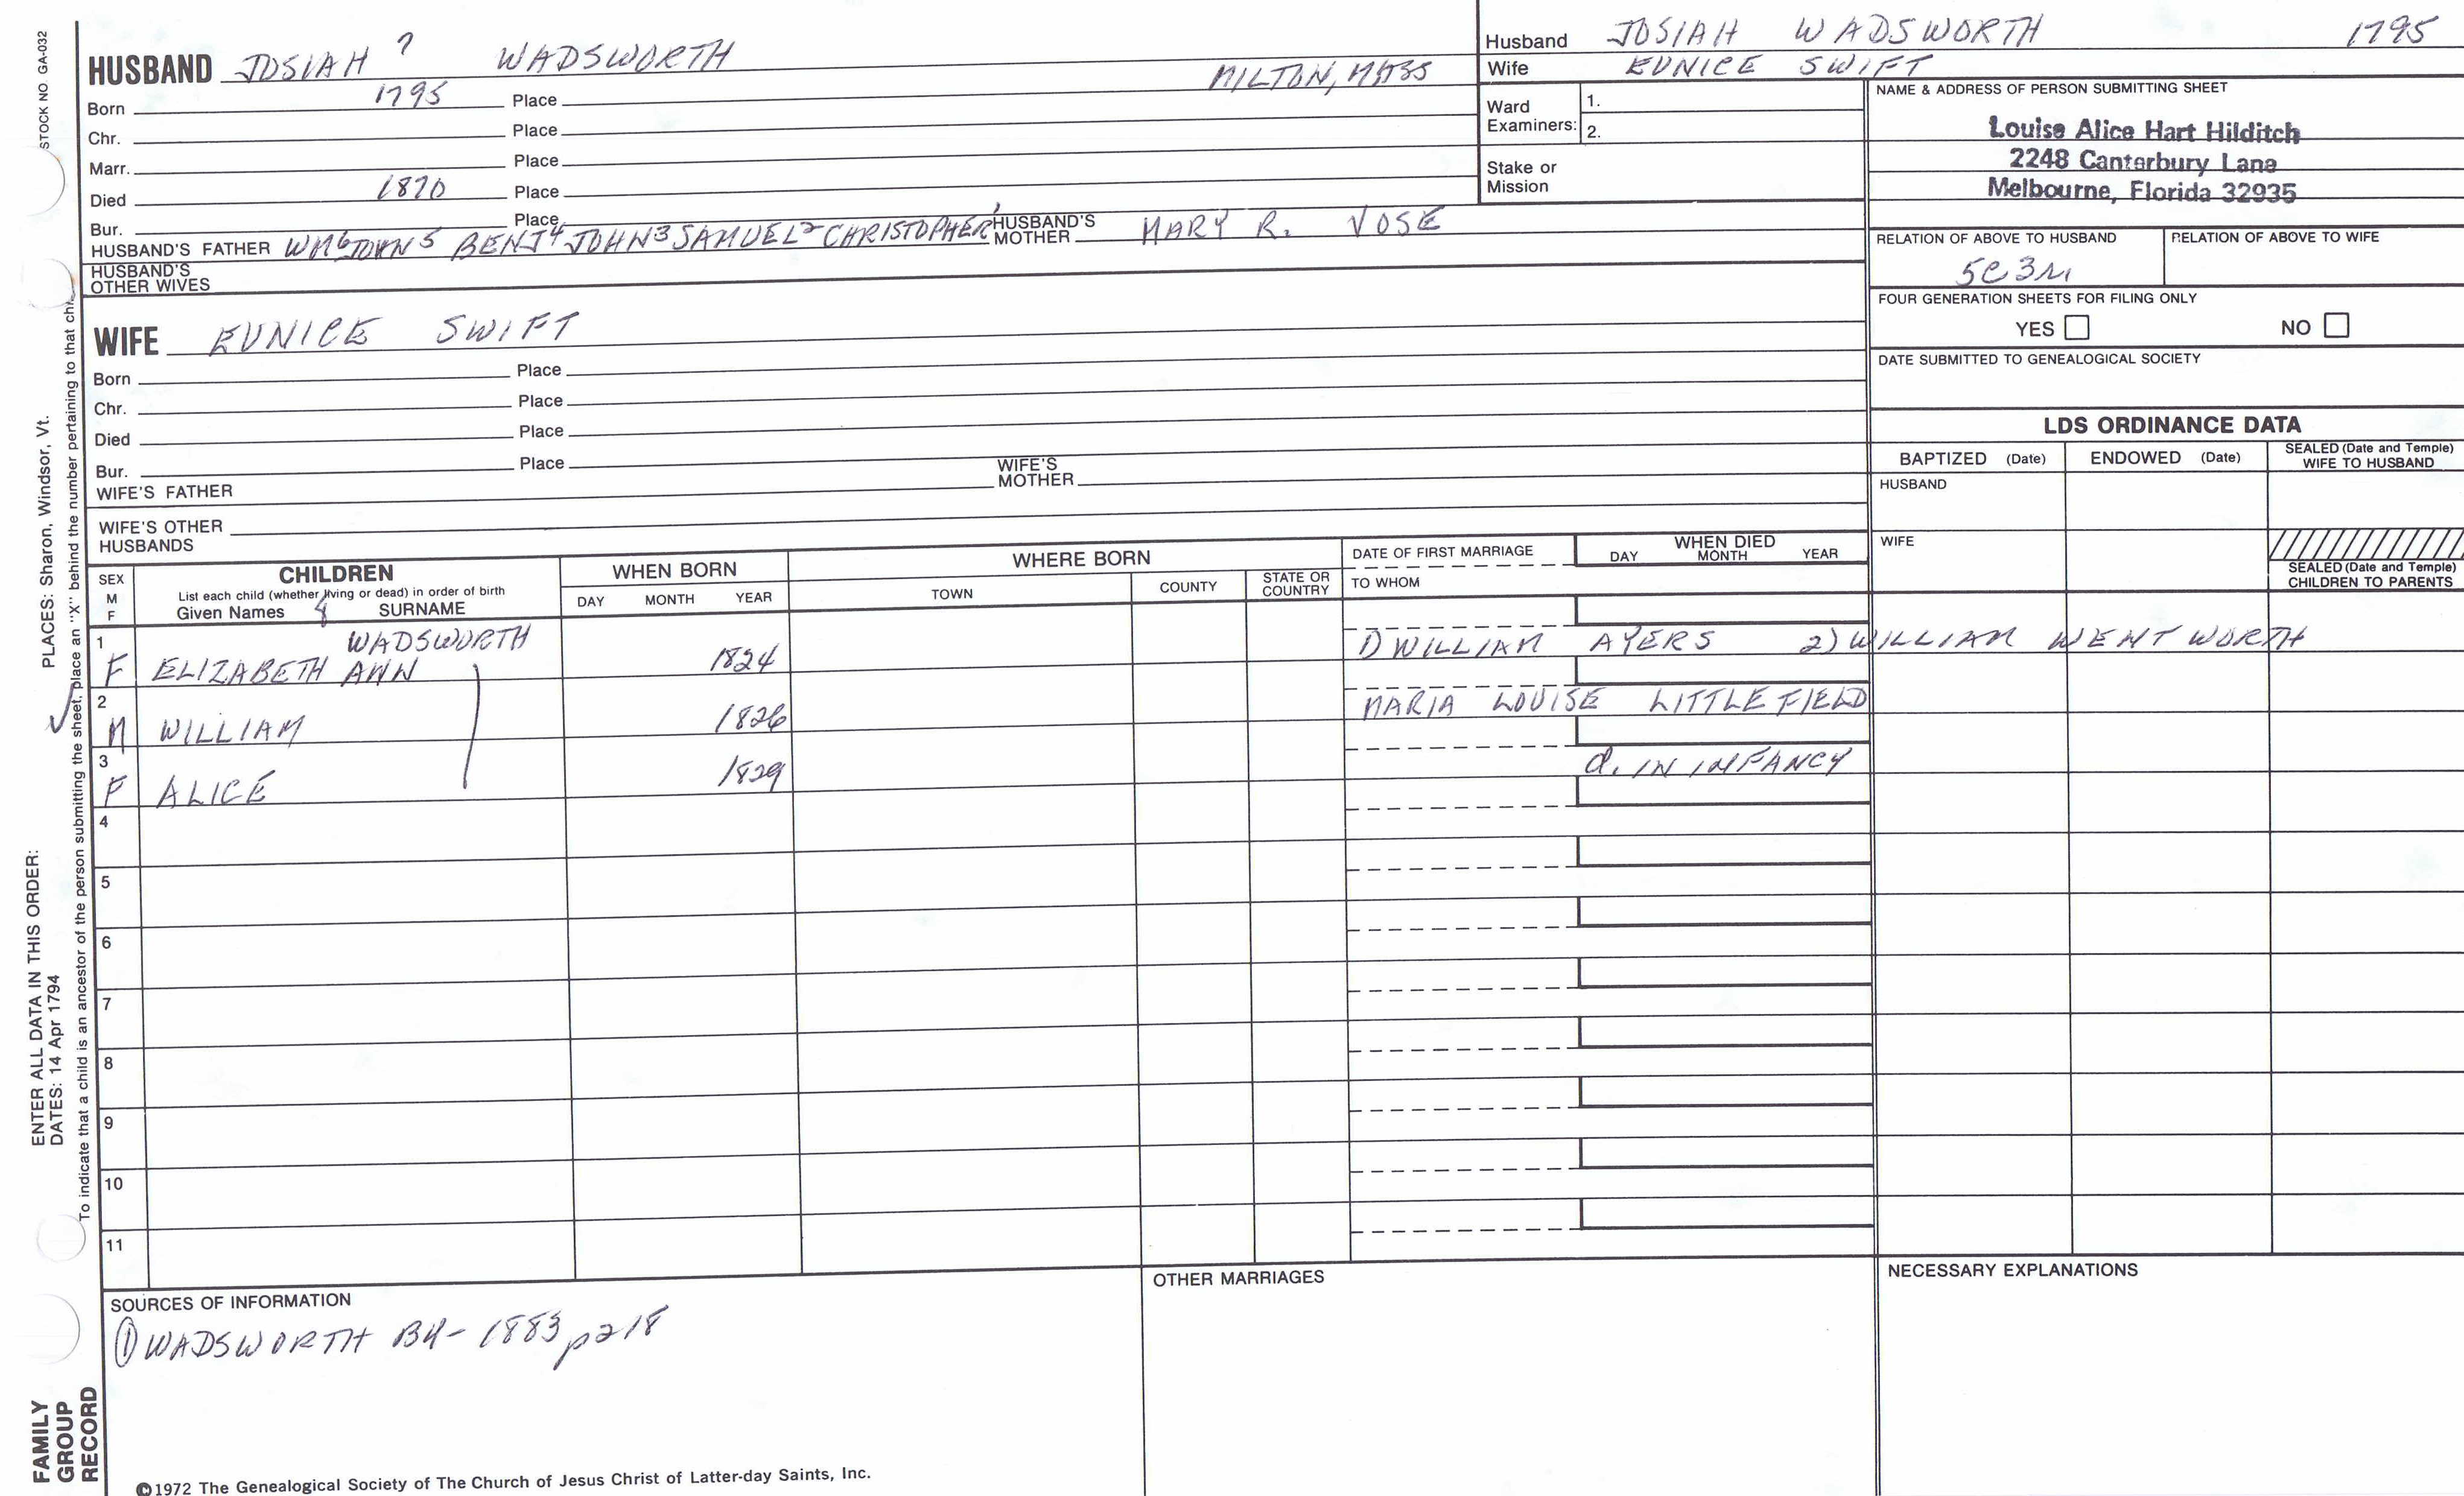 STOCK NO. GA-032
PLACES: Sharon, Windsor, Vt.
ENTER ALL DATA IN THIS ORDER:
DATES: 14 Apr 1794
To indicate that a child is an ancestor of the person submitting the sheet, place an "X" behind the number pertaining to that chi
FAMILY
GROUP
RECORD
HUSBAND JOSIAH ? WADSWORTH
Born 1795 Place MILTON, MASS
Chr. Place
Marr. Place
Died 1870 Place
Bur. Place
HUSBAND'S FATHER WM6 JOHN5 BENJ4 JOHN3 SAMUEL2 CHRISTOPHER1 HUSBAND'S MOTHER MARY R. VOSE
HUSBAND'S
OTHER WIVES
WIFE EUNICE SWIFT
Born Place
Chr. Place
Died Place
Bur. Place
WIFE'S FATHER WIFE'S MOTHER
WIFE'S OTHER
HUSBANDS
Husband JOSIAH WADSWORTH 1795
Wife EUNICE SWIFT
Ward
Examiners:
1.
2.
Stake or
Mission
NAME & ADDRESS OF PERSON SUBMITTING SHEET
Louise Alice Hart Hilditch
2248 Canterbury Lane
Melbourne, Florida 32935
RELATION OF ABOVE TO HUSBAND RELATION OF ABOVE TO WIFE
5C3R
FOUR GENERATION SHEETS FOR FILING ONLY
YES NO
DATE SUBMITTED TO GENEALOGICAL SOCIETY
LDS ORDINANCE DATA
BAPTIZED (Date) ENDOWED (Date) SEALED (Date and Temple)
WIFE TO HUSBAND
HUSBAND
WIFE
SEALED (Date and Temple)
CHILDREN TO PARENTS
SEX
M
F
CHILDREN
List each child (whether living or dead) in order of birth
Given Names & SURNAME
WHEN BORN
DAY MONTH YEAR
WHERE BORN
TOWN COUNTY STATE OR COUNTRY
DATE OF FIRST MARRIAGE
TO WHOM
WHEN DIED
DAY MONTH YEAR
1 WADSWORTH
F ELIZABETH ANN 1824 1) WILLIAM AYERS 2) WILLIAM WENTWORTH
2
M WILLIAM 1826 MARIA LOUISE LITTLEFIELD
3
F ALICE 1829 d. IN INFANCY
4
5
6
7
8
9
10
11
SOURCES OF INFORMATION
① WADSWORTH BY- 1883 p218
OTHER MARRIAGES
NECESSARY EXPLANATIONS
©1972 The Genealogical Society of The Church of Jesus Christ of Latter-day Saints, Inc.